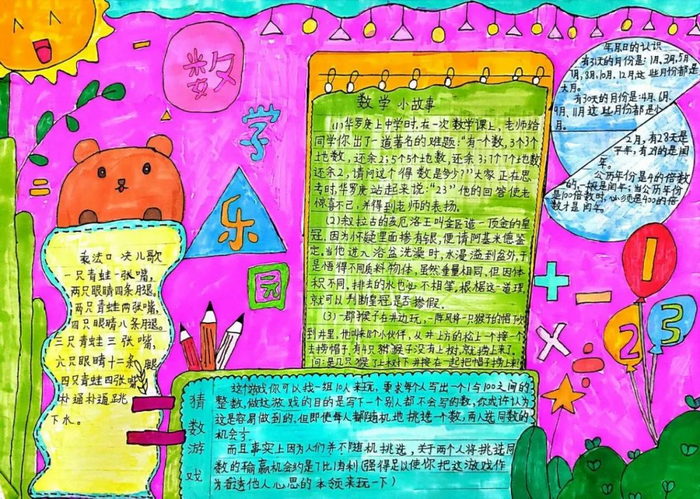 数
学
乐
园
数学小故事
(1)华罗庚上中学时,在一次数学课上,老师给
同学你出了一道著名的难题:“有个数,3个3个
地数,还余2;5个5个地数,还余3;7个7个地数,
还余2,请问这个得数是多少?”大家正在思
考时,华罗庚站起来说:“23”他的回答使老
师惊喜不已,并得到老师的表扬。
(2)叙拉古的亥厄洛王叫金匠造一顶金的皇
冠,因为怀疑里面掺有银,便请阿基米德鉴
定,当他进入浴盆洗澡时,水漫溢到盆外,于
是悟得不同质料物体,虽然重量相同,但因体
积不同,排去的水也必不相等,根据这一道理
就可以判断皇冠是否掺假。
(3)一群猴子在井边玩,一阵风
到井里,他叫来的小伙伴,从井上的松上一个接一个
去捞帽子,有4只猴子没有上树,就捞上来了,
年月日的认识
有31天的月份是:1月、3月、5月
7月、8月、10月、12月这些月份都是
大月。
有30天的月份是:4月、6月、
9月、11月这些月份都是小
月。
2月,有28天是
平年,有29的是闰
年。
公历年份是4的倍数
的,一般是闰年;当公历年份
是100倍数时,必须是400的倍
数才是闰年。
乘法口决儿歌
一只青蛙一张嘴,
两只眼睛四条腿。
两只青蛙两张嘴,
四只眼睛八条腿。
三只青蛙三张嘴,
六只眼睛十二条腿
四只青蛙四张嘴
扑通扑通跳
下水。
猜
数
游
戏
一这游戏你可以找一组10人来玩,要求每个人写出一个1与100之间的
整数,做这游戏的目的是写下一个别人都不会写的数,你或许认为
这是容易做到的,但即使每人都随机地挑选一个数,两人选同数的
机会才
而且事实上因为人们并不随机挑选,关于两个人将挑选同
数的输赢机会约是7比1胜利(强得足以使你把这游戏作
为看透他人心思的本领来玩一下)
+
-
×
÷
1
2
3